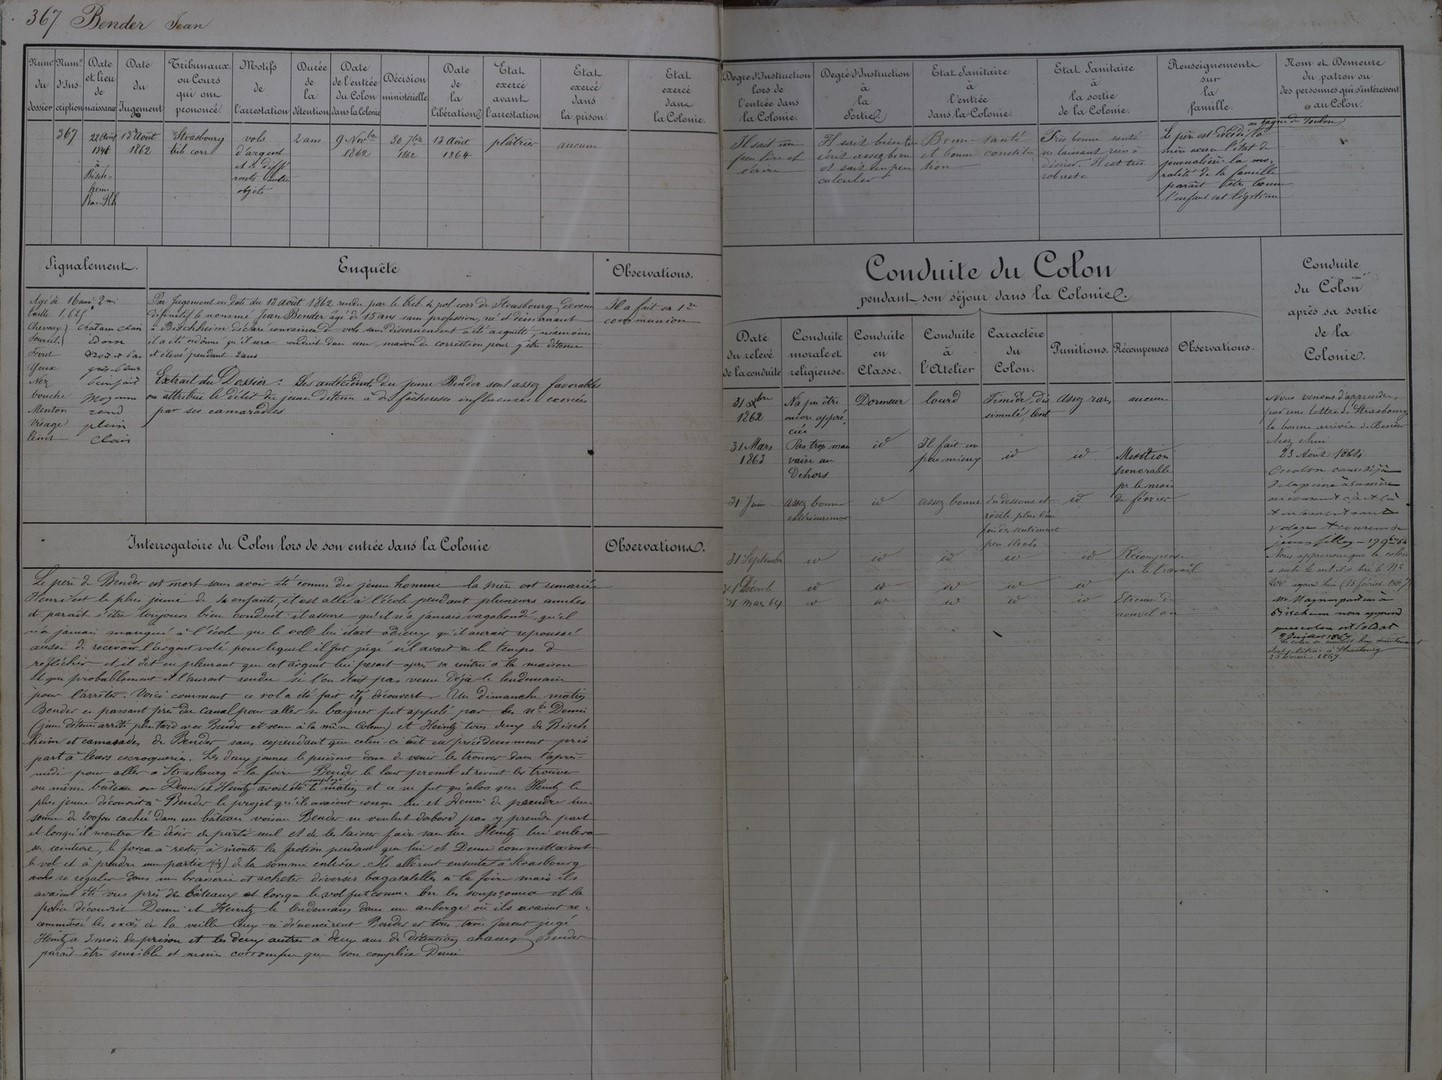 367 Bender Jean
Num.o du dossier
Num.o d'Inscription
Date et lieu de naissance
Date du Jugement
Tribunaux ou Cours qui ont prononcé.
Motifs de l'arrestation
Durée de la détention
Date de l'entrée du Colon dans la Colonie
Décision ministérielle
Date de la Libération
Etat exercé avant l'arrestation
Etat exercé dans la prison.
Etat exercé dans la Colonie.
367
22 Août 1846 à
13 Août 1862
Strasbourg trib. corr.
vols d'argent et objets
2 ans
9 Nov.bre 1862
30 7bre 1862
13 Août 1864
plâtrier
aucun
Signalement.
Agé de 16 ans 2 m
taille 1,625
Cheveux chatain clair
Sourcils
Front
Yeux
Nez
bouche moyenne
Menton rond
Visage plein
teint clair
Enquête
Par Jugement en date du 13 août 1862 rendu par le trib. de pol. corr. de Strasbourg, devenu
définitif le nommé Jean Bender âgé de 15 ans sans profession, né et demeurant
à Bischheim déclaré convaincu de vols sans discernement a été acquitté, néanmoins
il a été ordonné qu'il sera conduit dans une maison de correction pour y être détenu
et élevé pendant 2 ans
Extrait du Dossier : Les antécédents du jeune Bender sont assez favorables
on attribue le délit du jeune détenu à de fâcheuses influences exercées
par ses camarades
Observations.
Il a fait sa 1re
communion
Interrogatoire du Colon lors de son entrée dans la Colonie
Observations.
Le père de Bender est mort sans avoir été connu du jeune homme la mère est remariée
est le plus jeune de 4 enfants, il est allé à l'école pendant plusieurs années
et paraît s'être toujours bien conduit il assure qu'il n'a jamais vagabondé, qu'il
n'a jamais manqué à l'école que le vol lui était odieux qu'il aurait repoussé
aussi de recevoir l'argent volé pour lequel il fut jugé s'il avait eu le temps de
réfléchir et il dit en pleurant que cet argent lui pesait après sa rentrée à la maison
et que probablement il l'aurait rendu si l'on était pas venu déjà le lendemain
pour l'arrêter. Voici comment ce vol a été fait et découvert. Un dimanche matin
Bender en passant près du canal pour aller se baigner fut appelé par les n.és
(jeune détenu arrêté plus tard avec Bender et venu à la même Colonie) et Heintz tous deux de Bisch
heim et camarades de Bender sans cependant que celui-ci ait eu précédemment pris
part à leurs escroqueries. Les deux jeunes le prièrent donc de venir les trouver dans l'après-
midi pour aller à Strasbourg à la foire Bender le leur promit et revint les trouver
au même bâteau où et Heintz avait été employé le matin et ce ne fut qu'alors que Heintz le
plus jeune découvrit à Bender le projet qu'ils avaient conçu lui et de prendre une
somme de 200 frs cachée dans un bâteau voisin Bender ne voulut d'abord pas y prendre part
et lorsqu'il montra le désir de partir seul et de les laisser faire sans lui Heintz lui enleva
sa ceinture, le força à rester, à monter la faction pendant que lui et commettaient
le vol et à prendre une partie de la somme enlevée. Ils allèrent ensuite à Strasbourg
se régaler dans une brasserie et acheter diverses bagatelles à la foire mais ils
avaient été vus près des bâteaux et lorsque le vol fut connu on les soupçonna et la
police découvrit et Heintz le lendemain dans une auberge où ils avaient re-
commencé les excès de la veille Ceux-ci dénoncèrent Bender et tous trois furent jugés
Heintz à 3 mois de prison et les deux autres à deux ans de détention chacun Bender
paraît être sensible et moins corrompu que son complice
Degré d'Instruction lors de l'entrée dans la Colonie.
Degré d'Instruction à la Sortie.
Etat Sanitaire à l'entrée dans la Colonie
Etat Sanitaire à la sortie de la Colonie.
Renseignements sur la famille.
Nom et Demeure du patron ou des personnes qui s'intéressent au Colon.
Il sait un peu lire et écrire
Il sait bien lire écrit assez bien et sait un peu calculer
Bonne santé et bonne constitution
Très bonne santé ne laissant rien à désirer. Il est très robuste
Le père est décédé au bagne de Toulon la mère exerce l'état de journalière la moralité de la famille paraît être bonne l'enfant est légitime
Conduite du Colon
pendant son séjour dans la Colonie.
Conduite du Colon après sa sortie de la Colonie.
Date du relevé de la conduite
Conduite morale et religieuse.
Conduite en Classe.
Conduite à l'Atelier
Caractère du Colon.
Punitions.
Récompenses
Observations.
31 Xbre 1862
N'a pu être encore appréciée
Dormeur
lourd
Timide, dissimulé, lent
assez rares
aucune
31 Mars 1863
Pas trop mauvaise au Dehors
id
Il fait un peu mieux
id
id
Mention honorable pr le mois de février
31 Juin
assez bonne extérieurement
id
assez bonne
id
31 Septembre
id
id
id
id
id
Récompense pr le travail
31 Décemb
id
id
id
id
id
31 Mar 64
id
id
id
id
id
Nous venons d'apprendre
par une lettre de Strasbourg
la bonne arrivée de Bender
chez lui
23 Août 1864